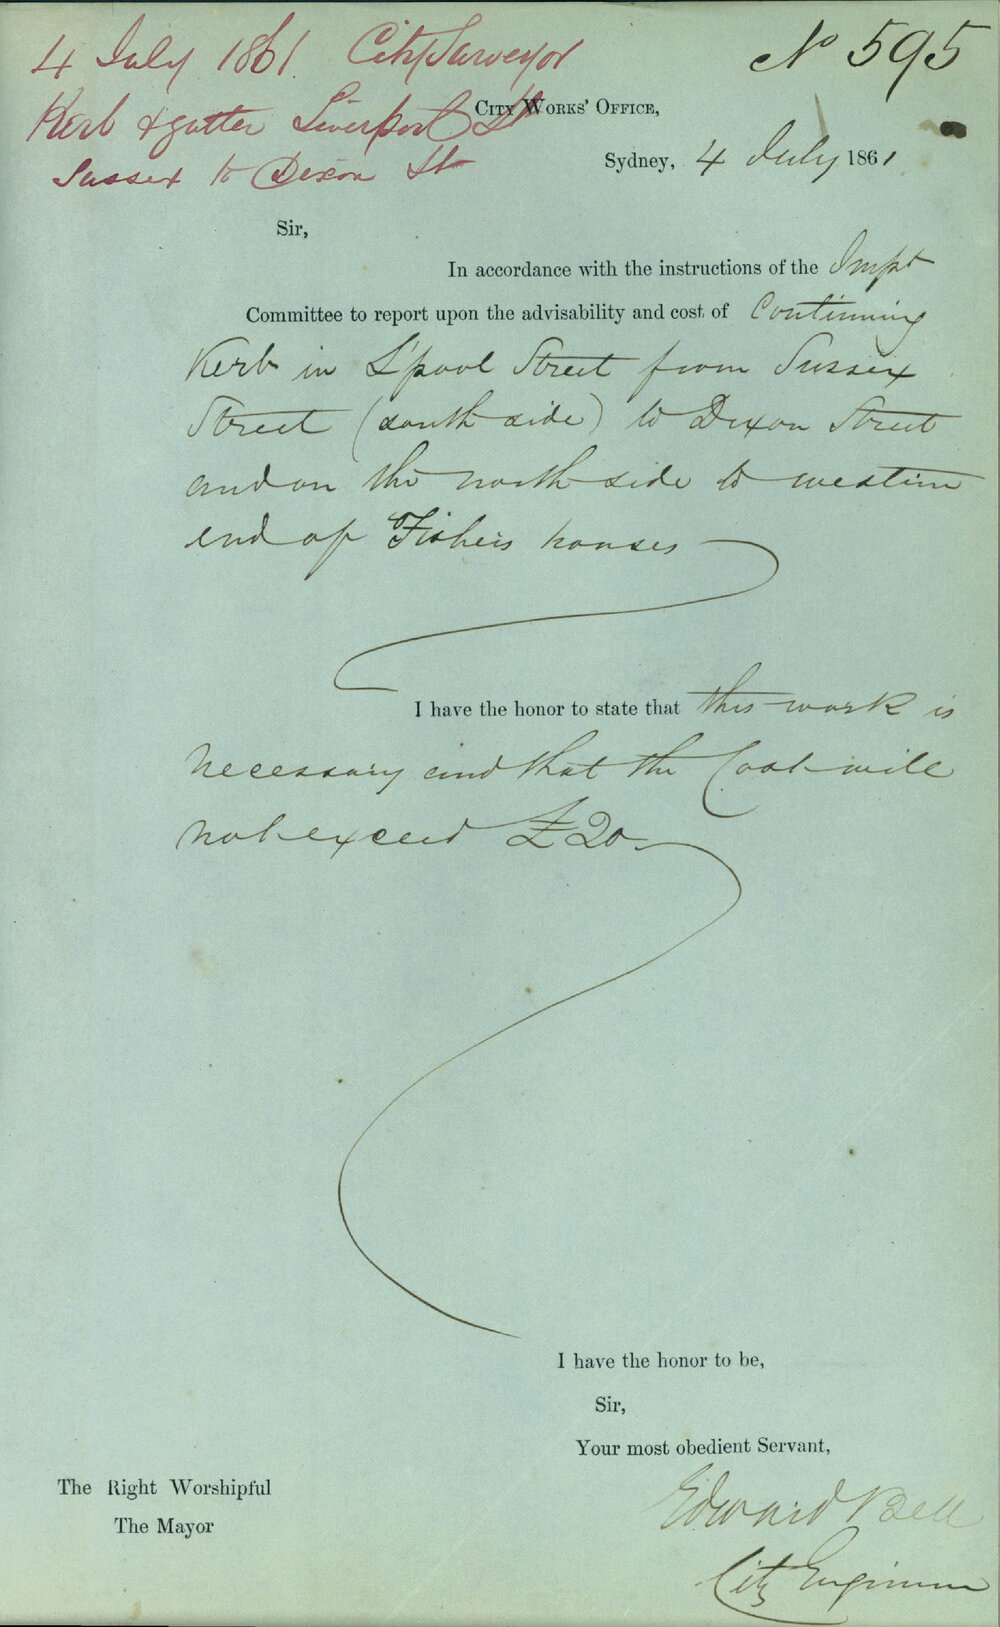 4 July 1861. City Surveyor
Kerb & gutter Liverpool St
Sussex to Dixon St
No 595
City Works' Office,
Sydney, 4 July 1861
Sir,
In accordance with the instructions of the Impt
Committee to report upon the advisability and cost of Continuing
Kerb in L'pool Street from Sussex
Street (south side) to Dixon Street
and on the north side to western
end of Fishers houses
I have the honor to state that this work is
necessary and that the Cost will
not exceed £20
I have the honor to be,
Sir,
Your most obedient Servant,
Edward Bell
City Engineer
The Right Worshipful
The Mayor